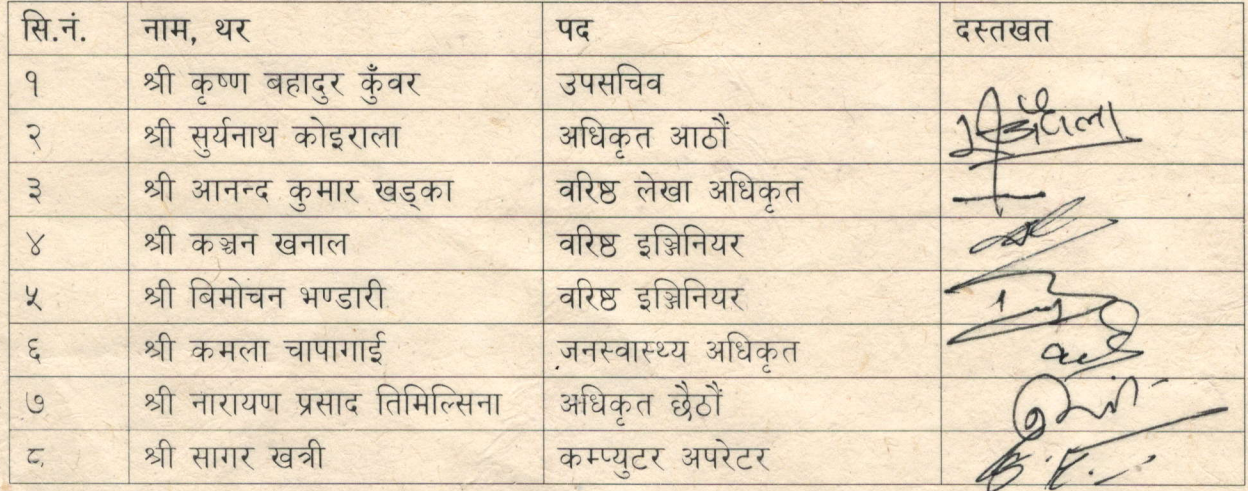 सि.नं. नाम, थर पद दस्तखत
१ श्री कृष्ण बहादुर कुँवर उपसचिव
२ श्री सुर्यनाथ कोइराला अधिकृत आठौं
३ श्री आनन्द कुमार खड्का वरिष्ठ लेखा अधिकृत
४ श्री कञ्चन खनाल वरिष्ठ इञ्जिनियर
५ श्री बिमोचन भण्डारी वरिष्ठ इञ्जिनियर
६ श्री कमला चापागाई जनस्वास्थ्य अधिकृत
७ श्री नारायण प्रसाद तिमिल्सिना अधिकृत छैठौं
८ श्री सागर खत्री कम्प्युटर अपरेटर